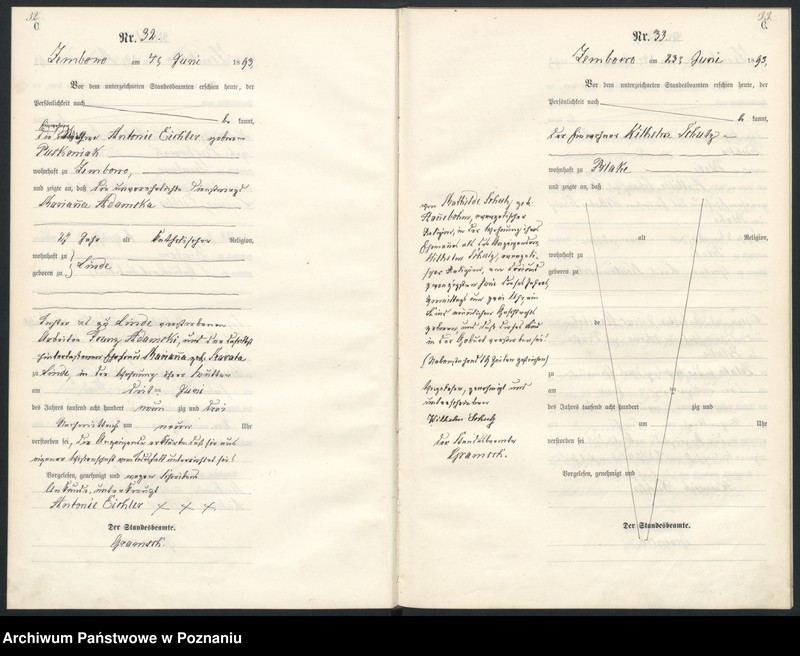 32.
C.
Nr. 32.
Zembowo am 4ten Juni 1893.
Vor dem unterzeichneten Standesbeamten erschien heute, der
Persönlichkeit nach
be kannt,
die Antonie Eichler geborene
Puskoniak
wohnhaft zu Zembowo,
und zeigte an, daß die unverehelichte Dienstmagd
Marianna Adamska
alt katholischer Religion,
wohnhaft zu
geboren zu } Linde
Tochter des zu Linde verstorbenen
Arbeiters Franz Adamski, und der
Marianna geb.
zu Linde, in der Wohnung ihrer Mutter
am dritten Juni
des Jahres tausend acht hundert neunzig und drei
Nachmittags um neun Uhr
verstorben sei, die Anzeigende erklärte daß sie aus
eigener Wissenschaft vom unterrichtet sei!
Vorgelesen, genehmigt und wegen Schreibens
Unkunde, unterkreuzt
Antonie Eichler + + +
Der Standesbeamte.
Gramsch.
33.
C.
Nr. 33.
Zembowo am 23ten Juni 1893.
Vor dem unterzeichneten Standesbeamten erschien heute, der
Persönlichkeit nach
be kannt,
der Einwohner Wilhelm Schulz
wohnhaft zu
und zeigte an, daß
von Mathilde Schulz geb.
evangelischer
Religion, in der Wohnung ihres
Ehemanns als des Anzeigenden
Wilhelm Schulz, evangeli-
scher Religion, am drei und
zwanzigsten Juni dieses Jahres,
Vormittags um zwei Uhr, ein
Kind männlichen Geschlechts
geboren und daß dieses Kind
in der Geburt verstorben sei!
Vorgelesen, genehmigt und
unterschrieben
Wilhelm Schulz
Der Standesbeamte
Gramsch.
alt Religion,
wohnhaft zu
geboren zu
de
zu
am ten
des Jahres tausend acht hundert zig und
um Uhr
verstorben sei
Vorgelesen, genehmigt und
Der Standesbeamte.
Archiwum Państwowe w Poznaniu